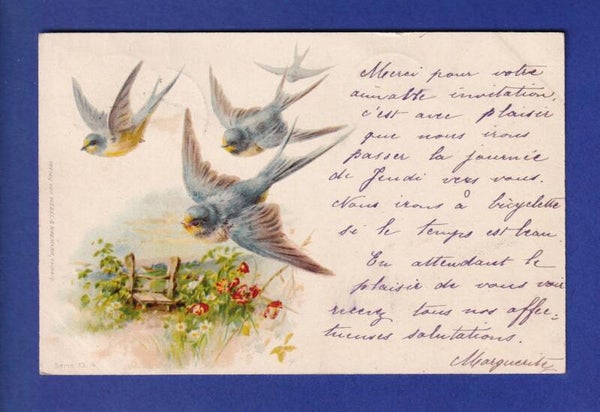 Merci pour votre
aimable invitation,
c'est avec plaisir
que nous irons
passer la journée
de Jeudi vers vous.
Nous irons à bicyclette
si le temps est beau.
En attendant le
plaisir de vous voir
recevez tous nos affec-
tueuses salutations.
Marguerite
Serie 12.